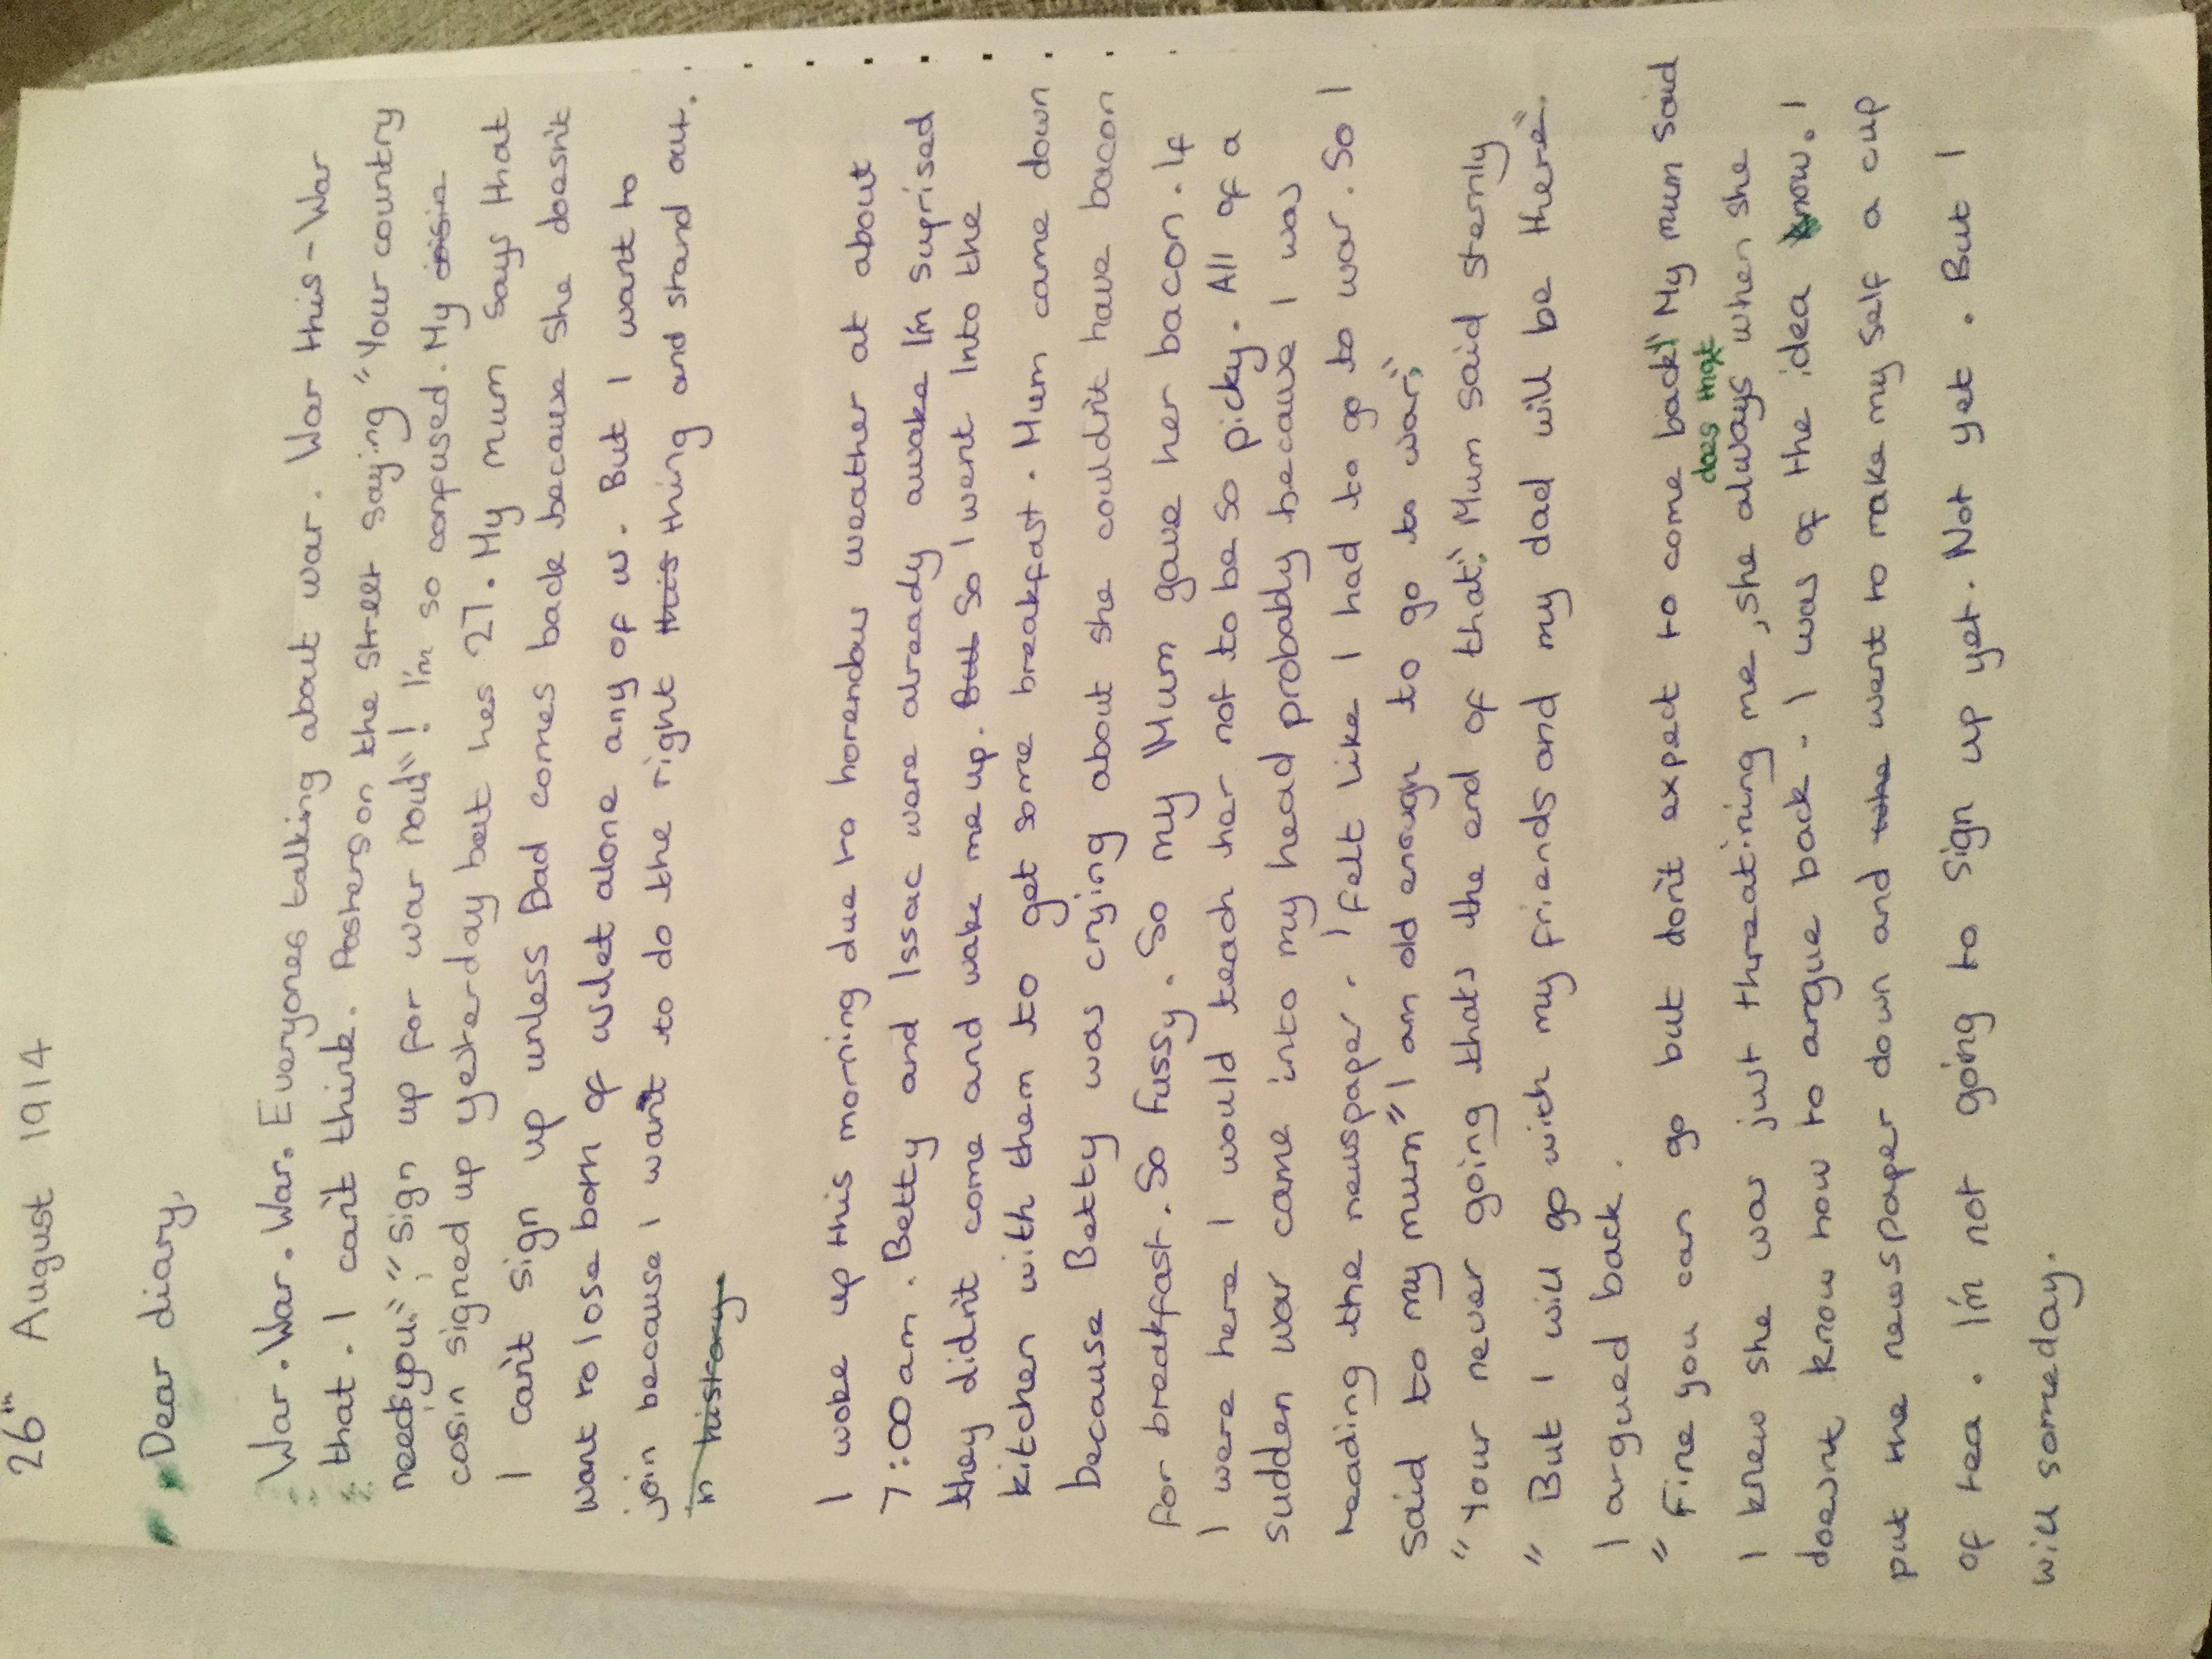 26th August 1914
Dear diary,
War. War. War. Everyones talking about war. War this - War
that. I can't think. Posters on the street saying "Your country
needs you", "Sign up for war now"! I'm so confused. My cosie
cosin signed up yesterday but hes 27. My mum says that
I can't sign up unless Dad comes back because she doesn't
want to lose both of us let alone any of us. But I want to
join because I want to do the right this thing and stand out.
in history
I woke up this morning due to horendous weather at about
7:00am. Betty and Issac were already awake I'm suprised
they didn't come and wake me up. But So I went into the
kitchen with them to get some breakfast. Mum came down
because Betty was crying about she couldn't have bacon
for breakfast. So fussy. So my Mum gave her bacon. If
I were here I would teach her not to be so picky. All of a
sudden war came into my head probably because I was
reading the newspaper. I felt like I had to go to war. So I
said to my mum "I am old enough to go to war,"
"Your never going thats the end of that," Mum said sternly
"But I will go with my friends and my dad will be there".
I argued back.
"Fine you can go but don't expect to come back!" My mum said
does that
I knew she was just threatining me, she always when she
doesnt know how to argue back. I was of the idea know. I
put the newspaper down and the went to make my self a cup
of tea. I'm not going to sign up yet. Not yet. But I
will someday.